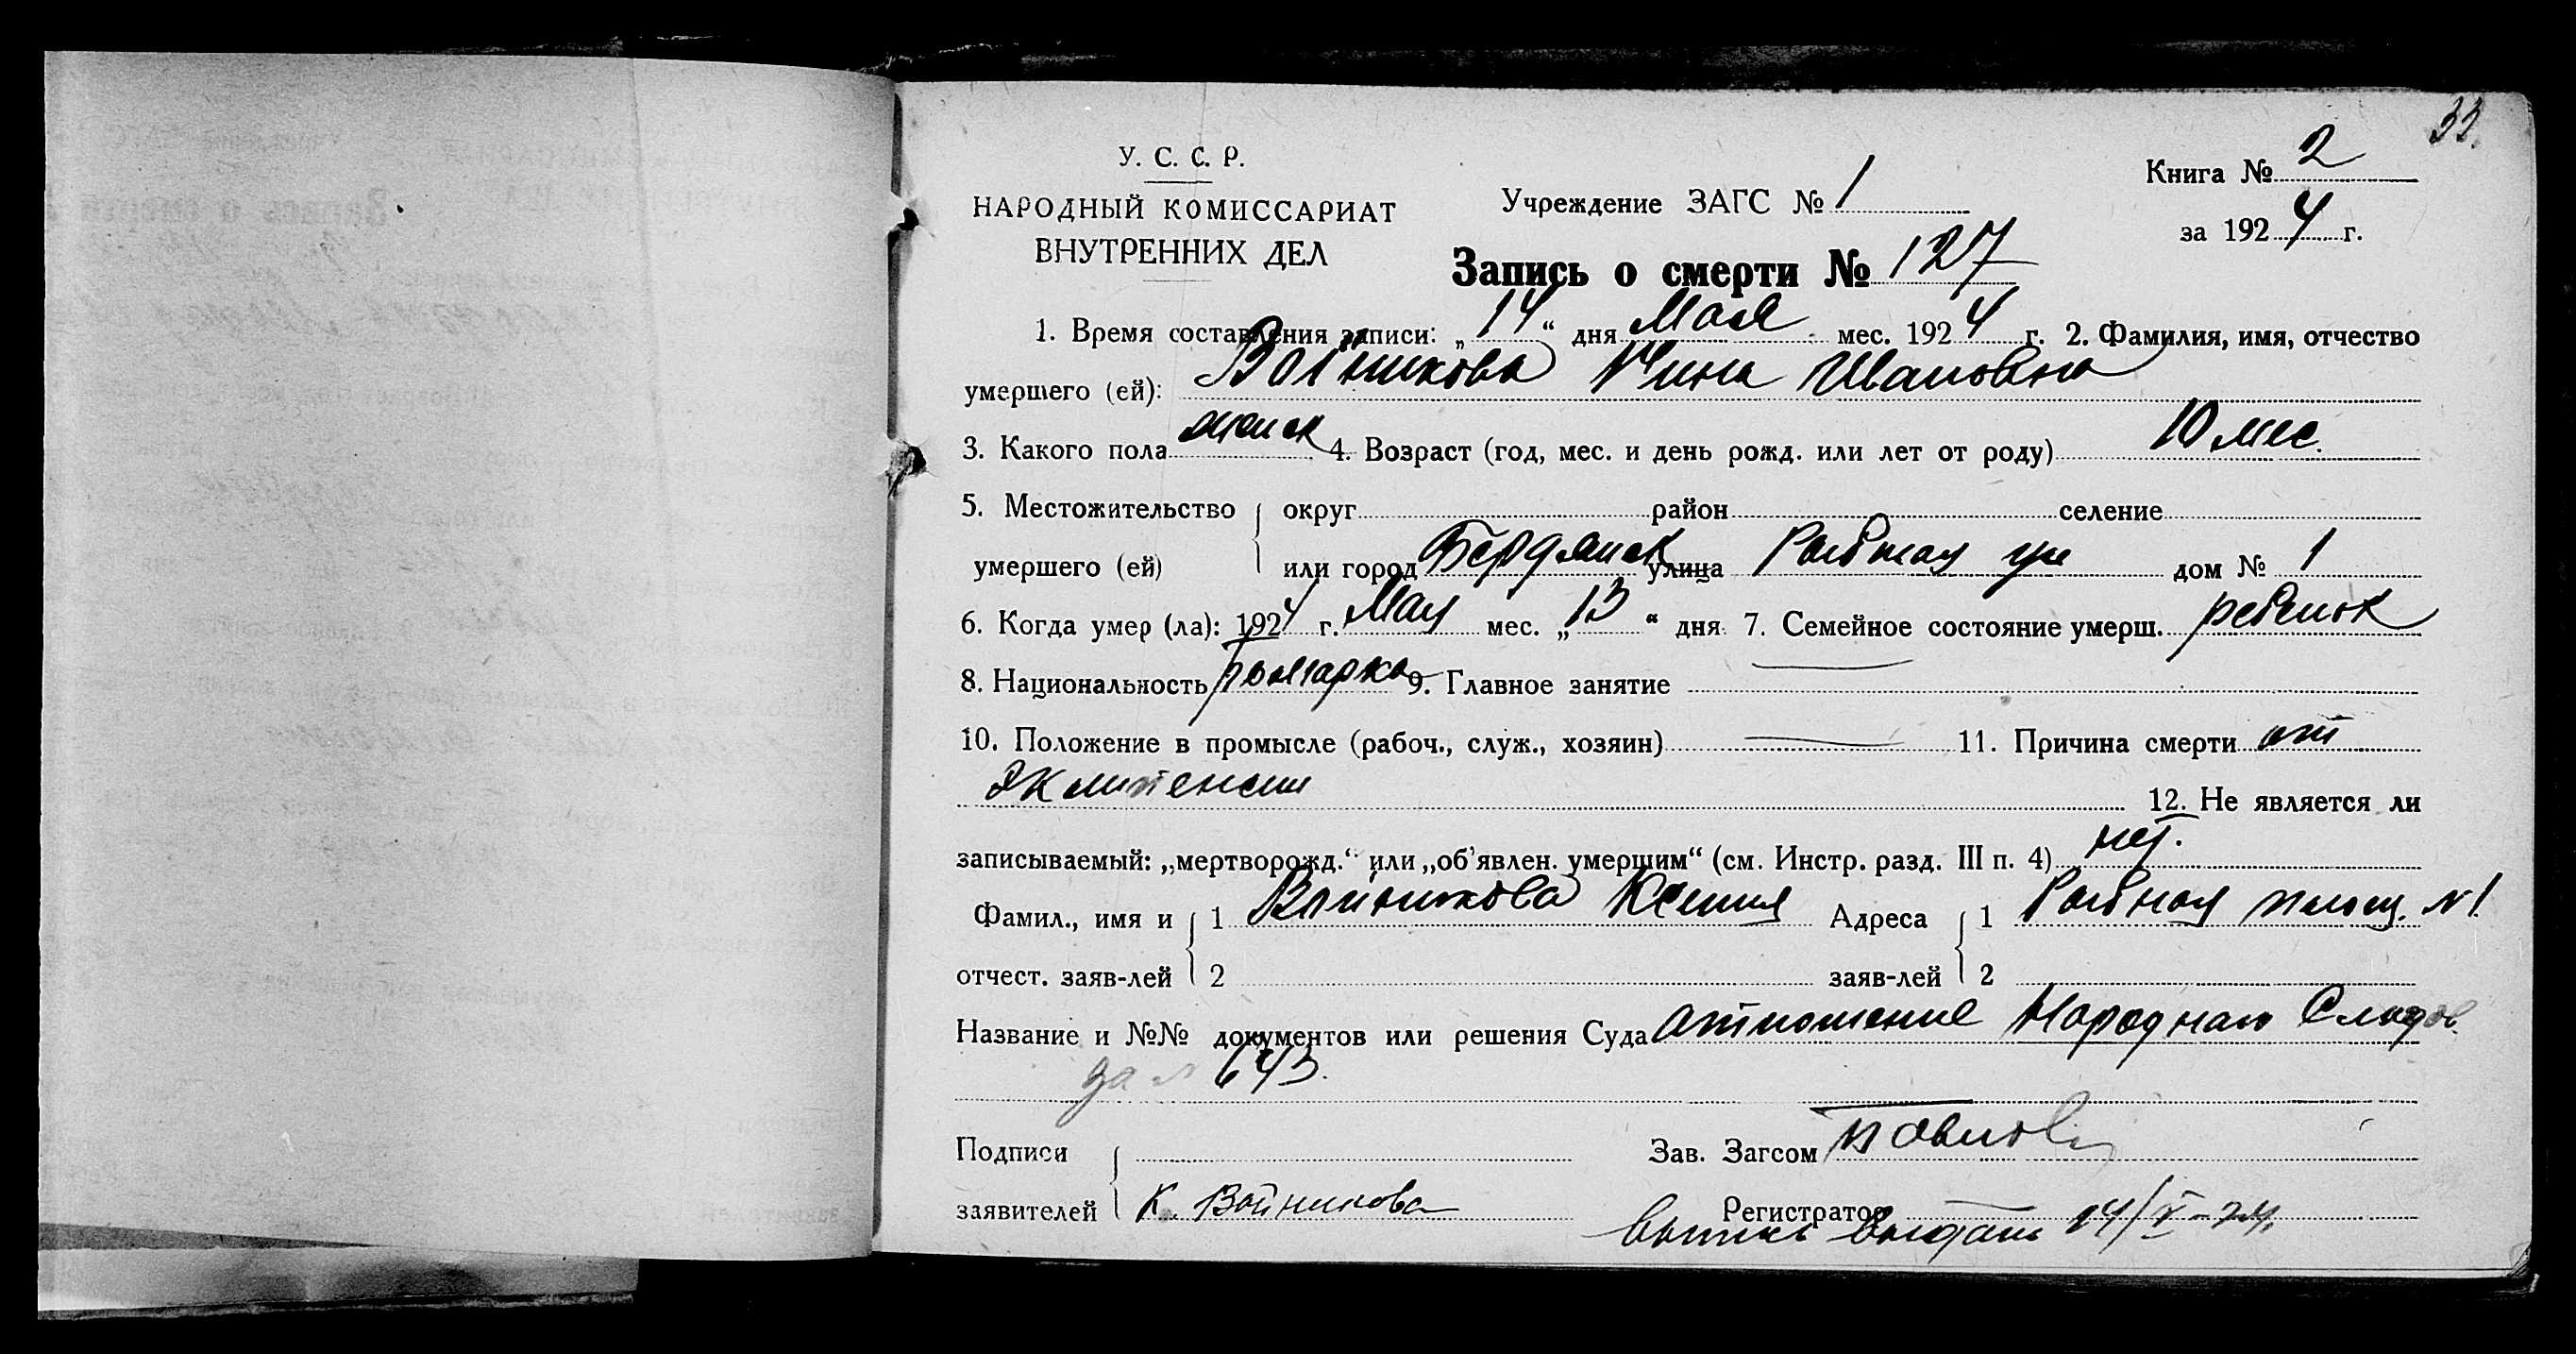 33.
У. С. С. Р.
НАРОДНЫЙ КОМИССАРИАТ
ВНУТРЕННИХ ДЕЛ
Учреждение ЗАГС № 1
Книга № 2
за 1924 г.
Запись о смерти № 127
1. Время составления записи: „14“ дня Мая мес. 1924 г. 2. Фамилия, имя, отчество
умершего (ей): Войникова Нина Ивановна
3. Какого пола женск 4. Возраст (год, мес. и день рожд. или лет от роду) 10 мес.
5. Местожительство округ район селение
умершего (ей) или город Бердянск улица Рыбная дом № 1
6. Когда умер (ла): 1924 г. Мая мес. „13“ дня 7. Семейное состояние умерш. ребенок
8. Национальность болгарка 9. Главное занятие
10. Положение в промысле (рабоч., служ., хозяин) 11. Причина смерти от
эклипенсии
12. Не является ли
записываемый: „мертворожд.“ или „об’явлен. умершим“ (см. Инстр. разд. III п. 4) нет.
Фамил., имя и 1 Войникова Ксения Адреса 1 Рыбная площ. N 1.
отчест. заяв-лей 2 заяв-лей 2
Название и №№ документов или решения Суда Отношение Народного Следов.
за № 643.
Подписи Зав. Загсом Павлов
заявителей К. Войникова Регистратор
Выпись выдана 14/V-24.